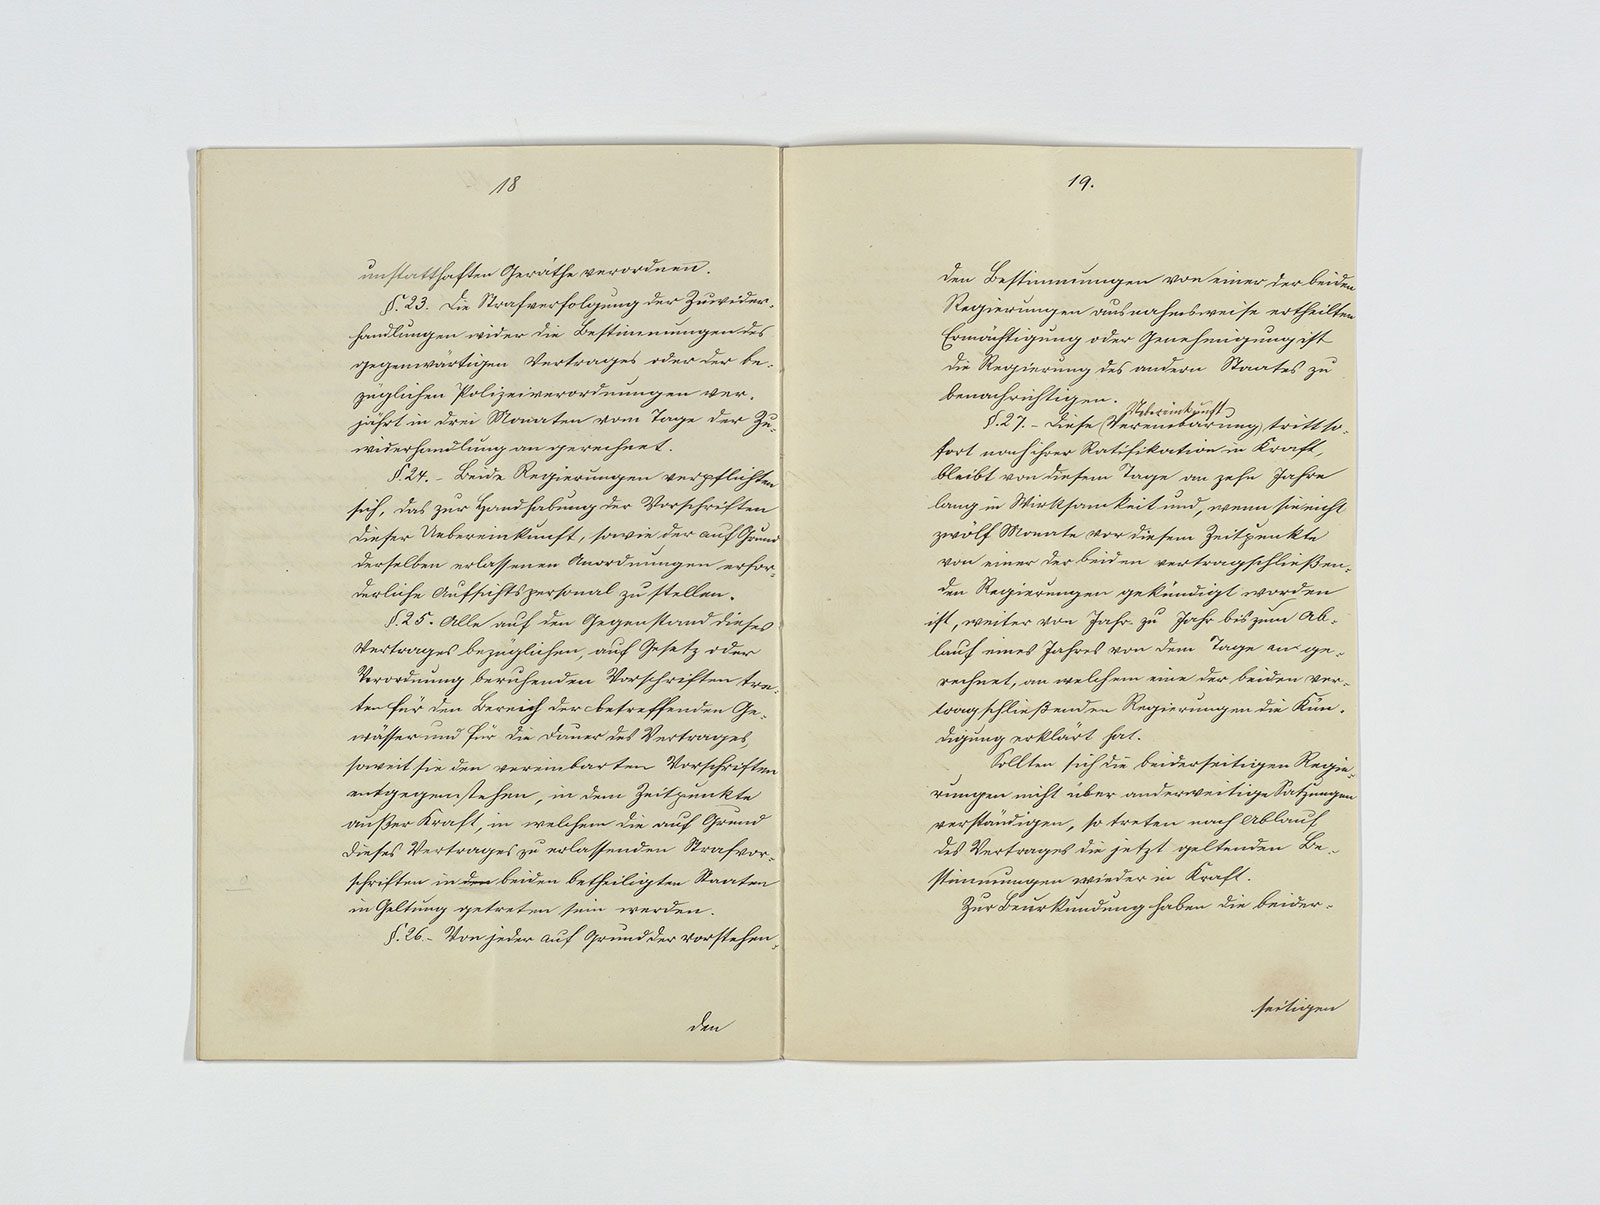 18
unstatthaften Geräthe verordnen.
§. 23. Die Strafverfolgung der Zuwider-
handlungen wider die Bestimmungen des
gegenwärtigen Vertrages oder der be-
züglichen Polizeiverordnungen ver-
jährt in drei Monaten vom Tage der Zu-
widerhandlung an gerechnet.
§. 24. - Beide Regierungen verpflichten
sich, das zur Handhabung der Vorschriften
dieser Uebereinkunft, sowie der auf Grund
derselben erlassenen Anordnungen erfor-
derliche Aufsichtspersonal zu stellen.
§. 25. Alle auf den Gegenstand dieses
Vertrages bezüglichen, auf Gesetz oder
Verordnung beruhenden Vorschriften tre-
ten für den Bereich der betreffenden Ge-
wässer und für die Dauer des Vertrages,
soweit sie den vereinbarten Vorschriften
entgegenstehen, in dem Zeitpunkte
außer Kraft, in welchem die auf Grund
dieses Vertrages zu erlassenden Strafvor-
schriften in den beiden betheiligten Staaten
in Geltung getreten sein werden.
§. 26. - Von jeder auf Grund der vorstehen-
den
19.
den Bestimmungen von einer der beiden
Regierungen ausnahmsweise ertheilten
Ermächtigung oder Genehmigung ist
die Regierung des andern Staates zu
benachrichtigen.
Uebereinkunft
§. 27. - Diese (Vereinbarung) tritt so-
fort nach ihrer Ratifikation in Kraft,
bleibt von diesem Tage an zehn Jahre
lang in Wirksamkeit und, wenn sie nicht
zwölf Monate vor diesem Zeitpunkte
von einer der beiden vertragschließen-
den Regierungen gekündigt worden
ist, weiter von Jahr zu Jahr bis zum Ab-
lauf eines Jahres von dem Tage an ge-
rechnet, an welchem eine der beiden ver-
tragschließenden Regierungen die Kün-
digung erklärt hat.
Sollten sich die beiderseitigen Regie-
rungen nicht über anderweitige Satzungen
verständigen, so treten nach Ablauf
des Vertrages die jetzt geltenden Be-
stimmungen wieder in Kraft.
Zur Beurkundung haben die beider-
seitigen